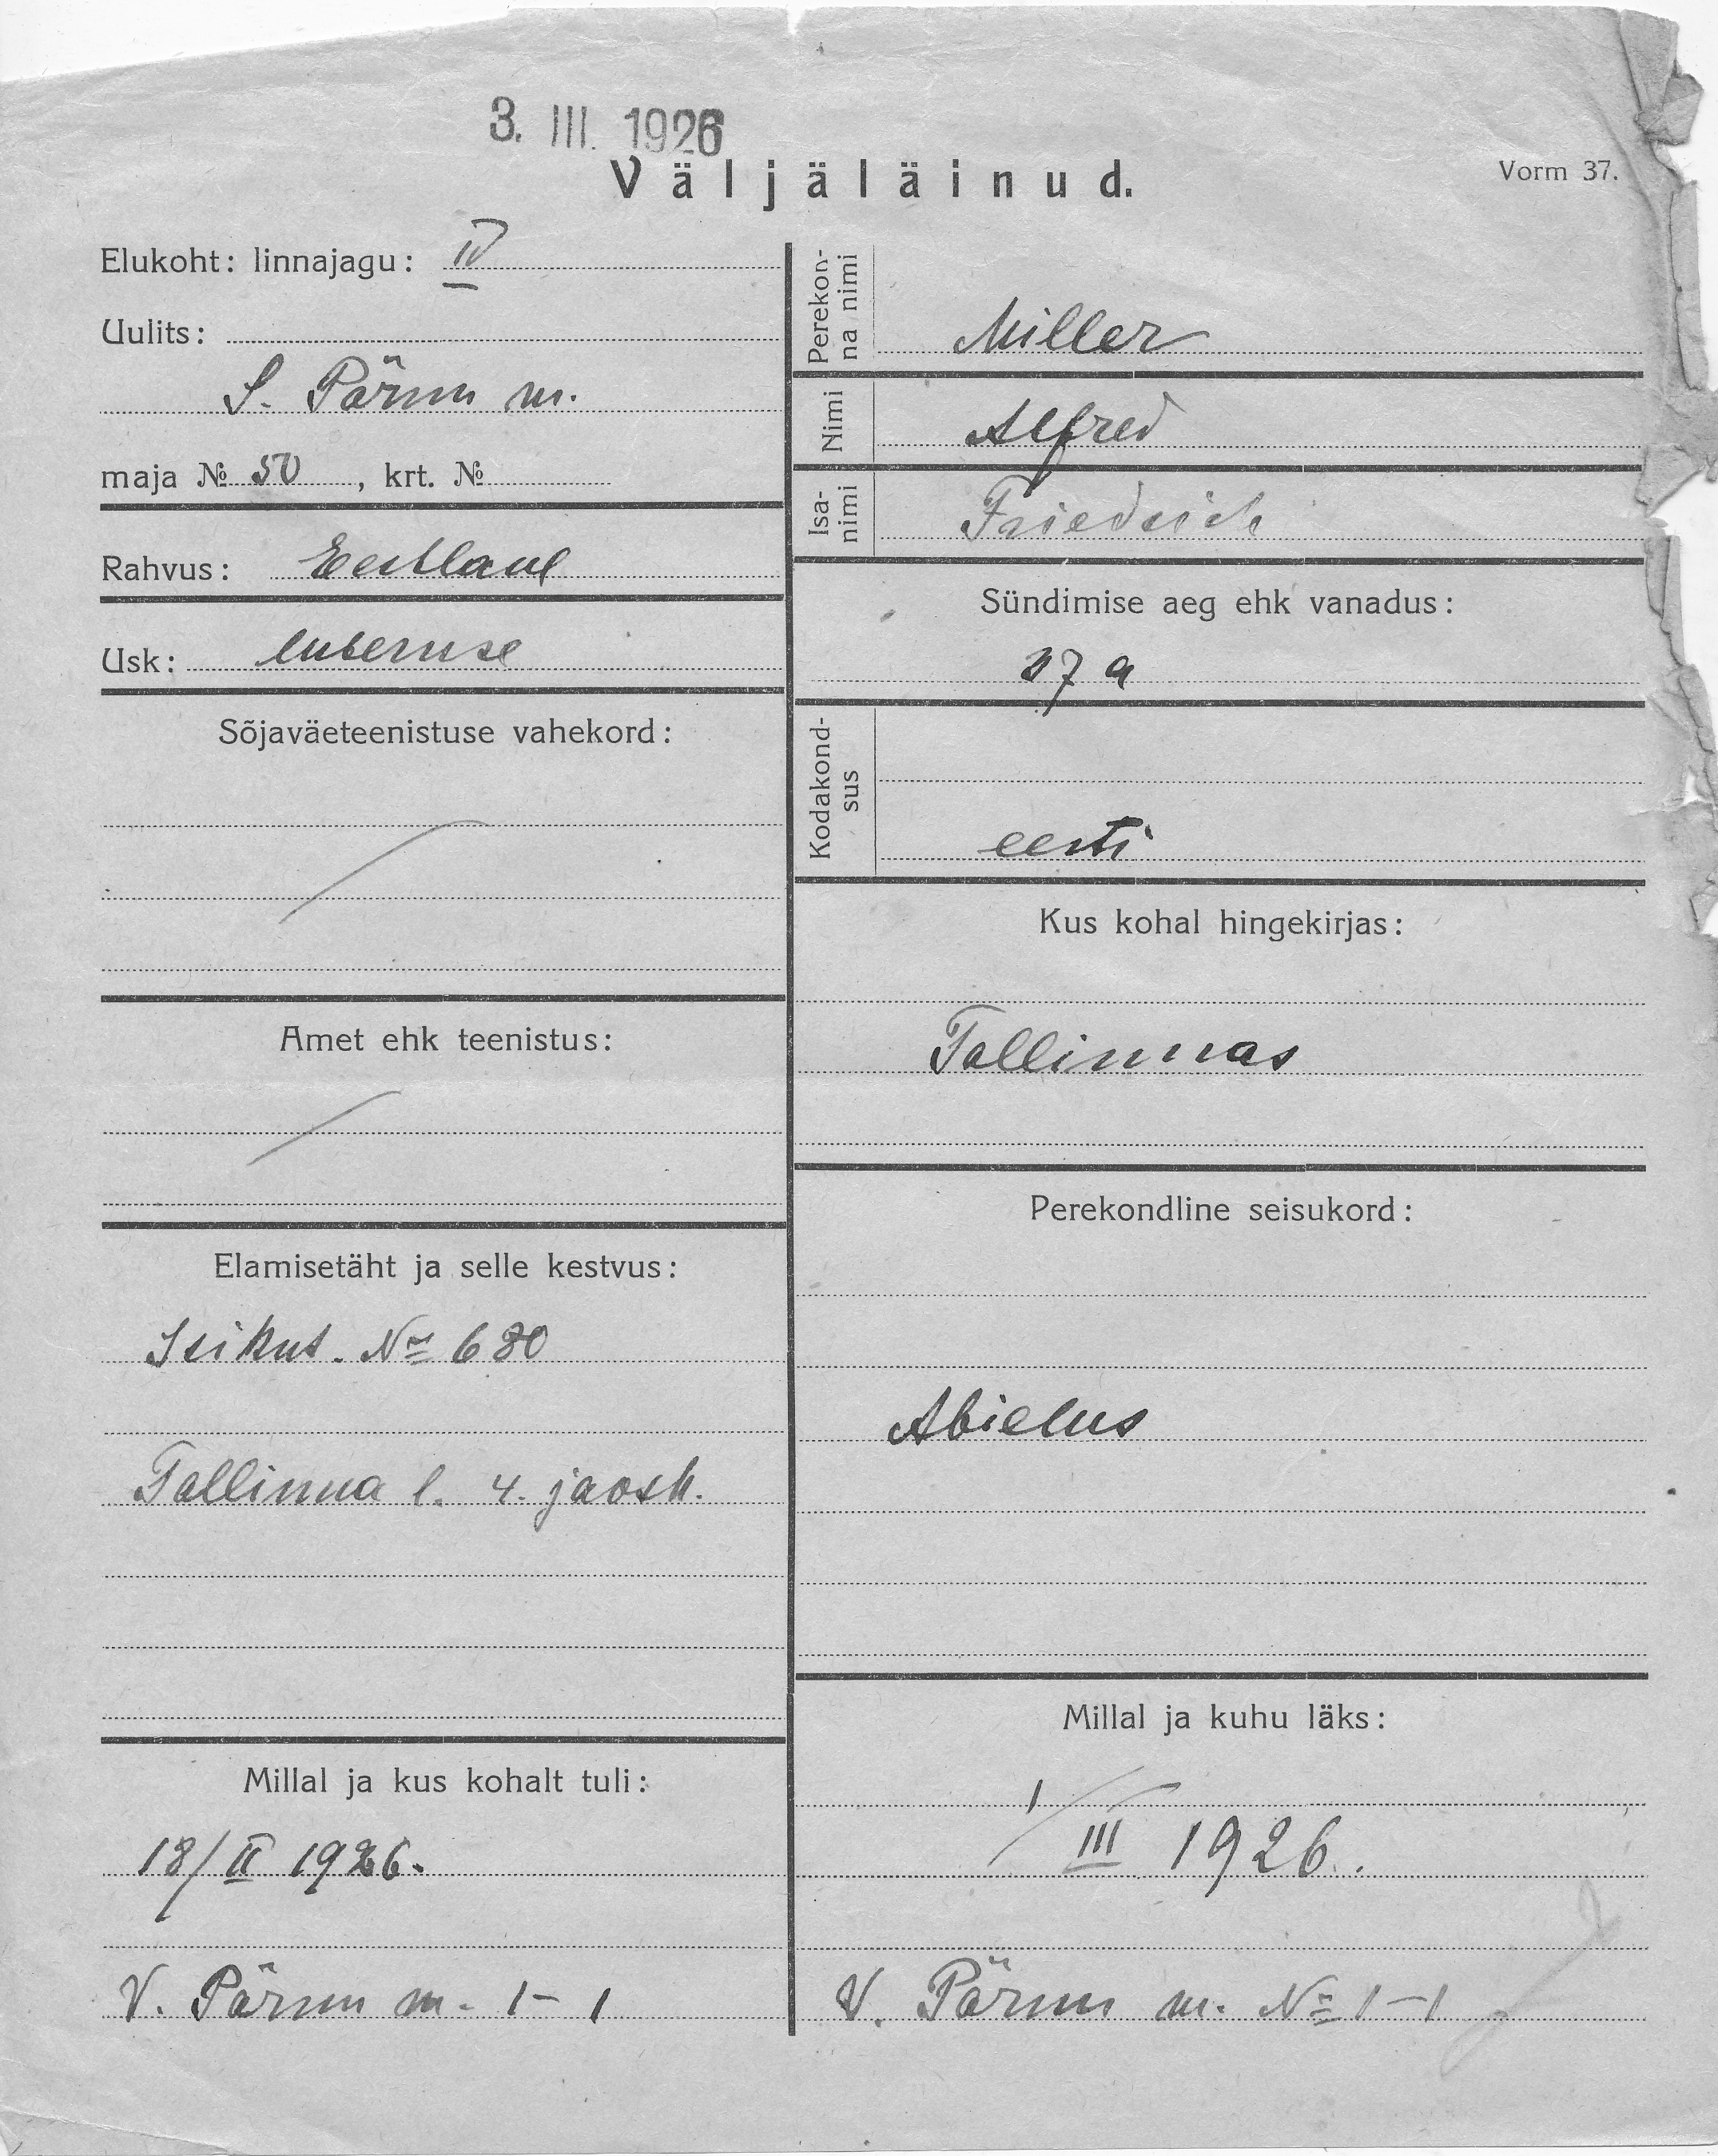 3. III. 1926
Väljäläinud.
Vorm 37.
Elukoht: linnajagu: IV
Uulits:
S. Pärnu m.
maja № 50, krt. №
Rahvus: Eestlane
Usk: luteruse
Sõjaväeteenistuse vahekord:
Amet ehk teenistus:
Elamisetäht ja selle kestvus:
Isikut. № 680
Tallinna l. 4. jaosk.
Millal ja kus kohalt tuli:
18/II 1926.
V. Pärnu m. 1-1
Perekon-
na nimi
Miller
Nimi
Alfred
Isa-
nimi
Friedrich
Sündimise aeg ehk vanadus:
37 a
Kodakond-
sus
eesti
Kus kohal hingekirjas:
Tallinnas
Perekondline seisukord:
Abielus
Millal ja kuhu läks:
1/III 1926.
V. Pärnu m. № 1-1